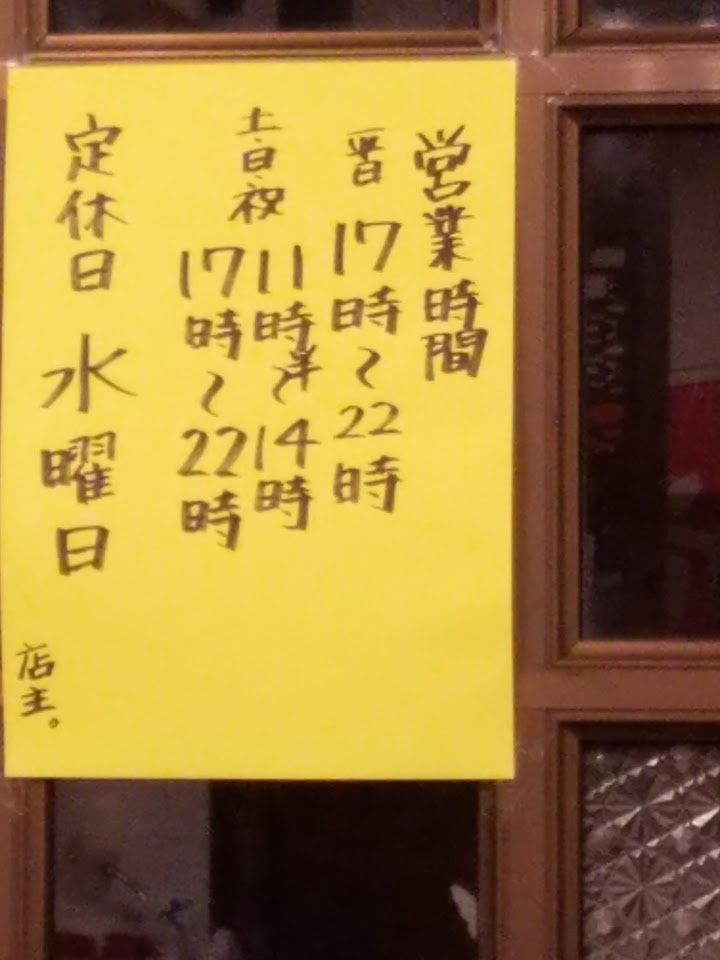 営業時間
平日 17時～22時
土・日・祝 11時半～14時
17時～22時
定休日 水曜日
店主。